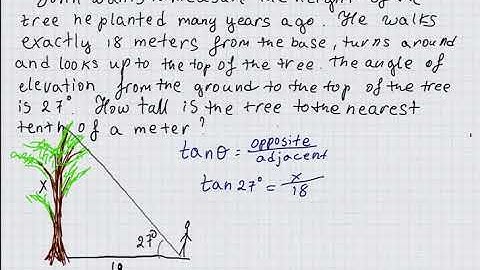 John wants to measure the height of the
tree he planted many years ago. He walks
exactly 18 meters from the base, turns around
and looks up to the top of the tree. The angle of
elevation from the ground to the top of the tree
is 27° How tall is the tree to the nearest
tenth of a meter?
tanθ = opposite
adjacent
tan 27° = x
18
x
27°
18